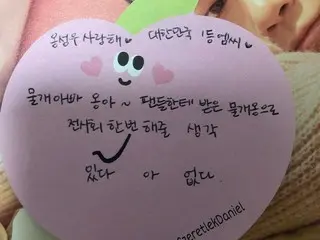 옹성우 사랑해♥ 대한민국 1등 엠씨♥
물개아빠 옹아~ 팬들한테 받은 물개옹으로
전시회 한번 해줄 생각
있다 아 없다.
SzeretlekDaniel